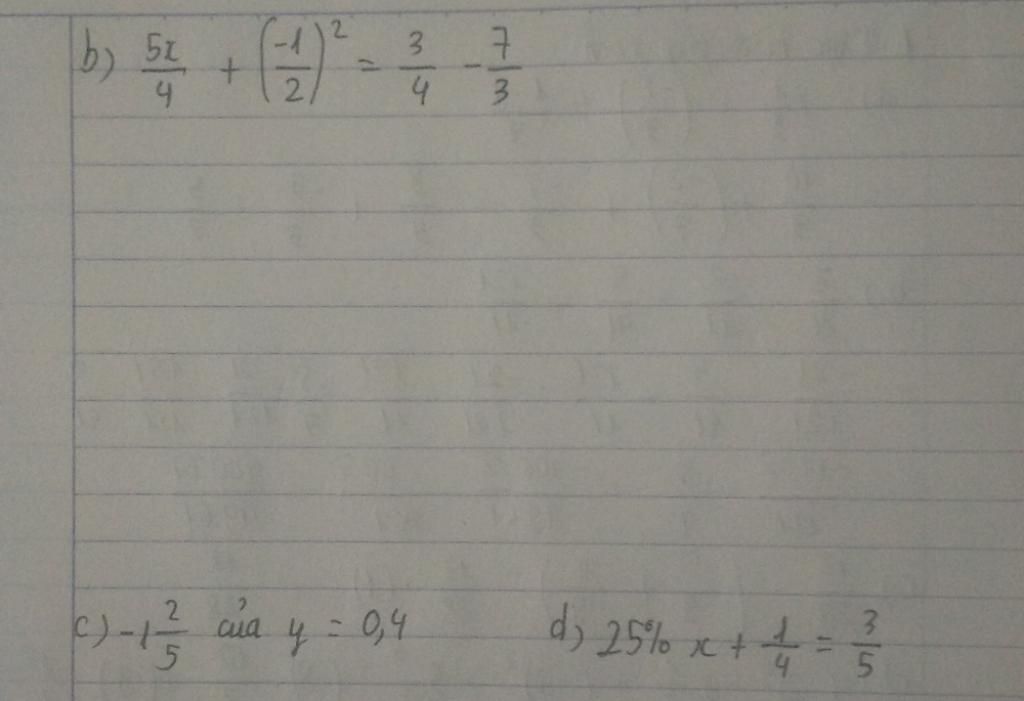 b) 5x/4 + (-1/2)² = 3/4 - 7/3
c) -1 2/5 của y = 0,4 d) 25% x + 1/4 = 3/5